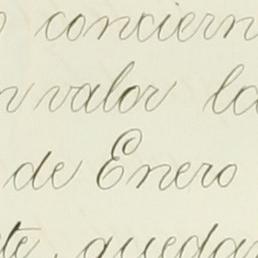 o conciern
n valor la
de Enero
te, quedan